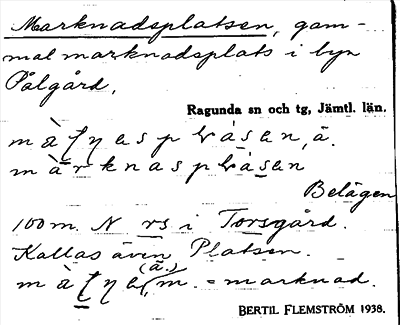 Marknadsplatsen, gam-
mal marknadsplats i byn
Pålgård.
Ragunda sn och tg, Jämtl. län.
Belägen
100 m. N rs i Torsgård.
Kallas även Platsen.
= marknad.
BERTIL FLEMSTRÖM 1938.